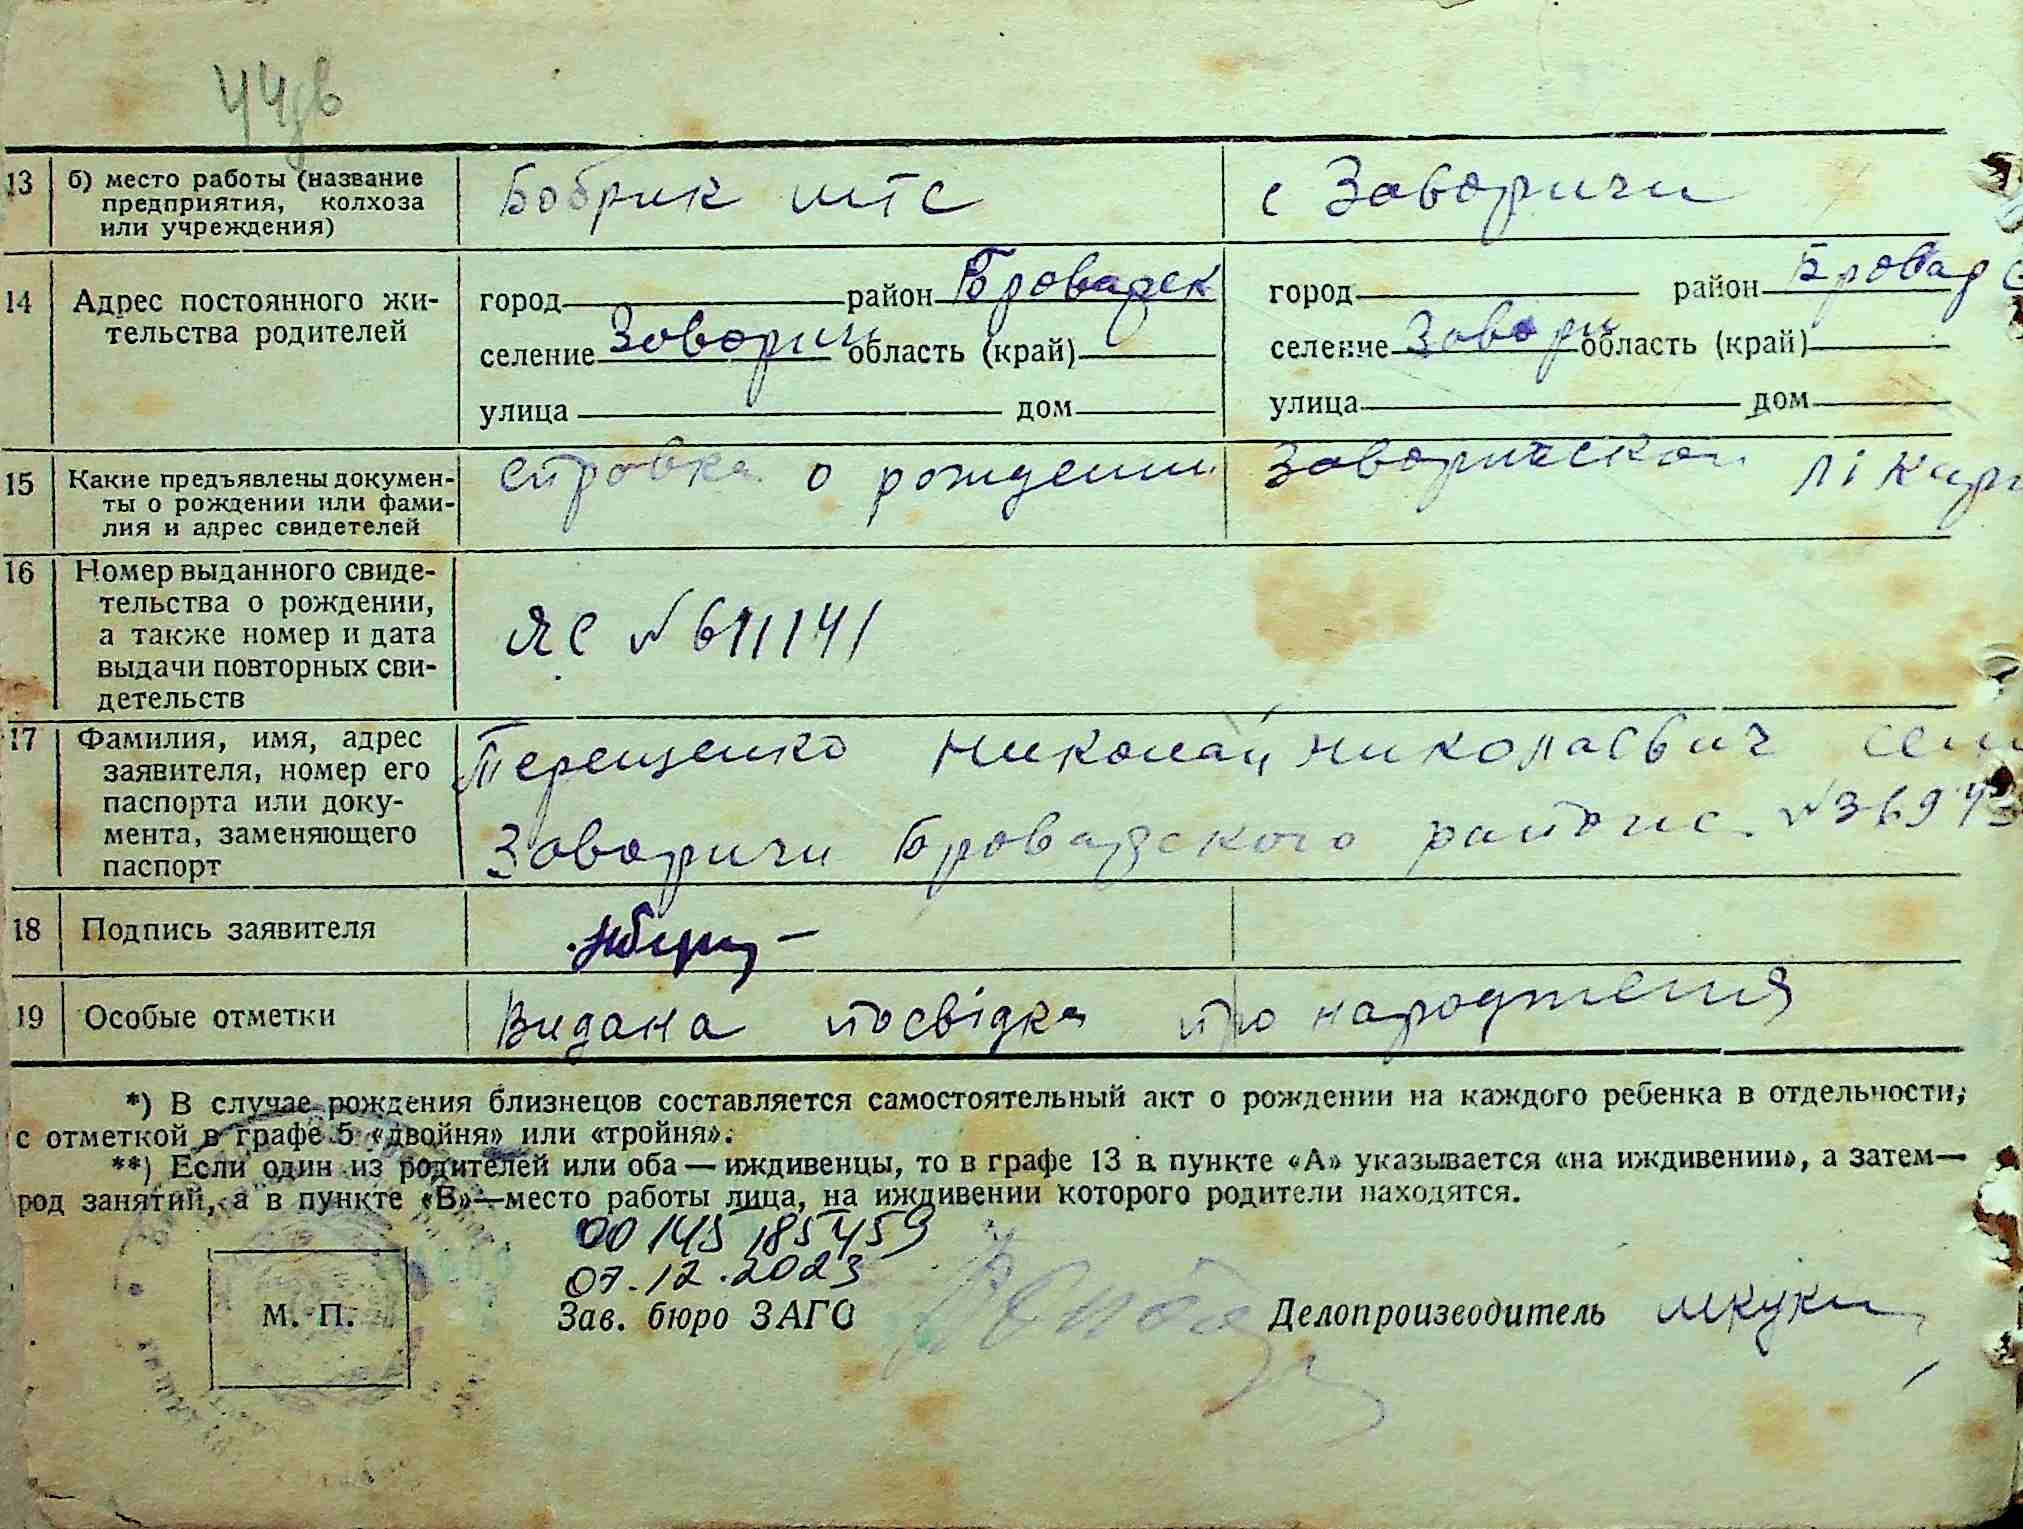 13 б) место работы (название предприятия, колхоза или учреждения) Бобрик мтс с Заворичи
14 Адрес постоянного жительства родителей
город район Броварск город район Бровар
селение Заворич область (край) селение Завор область (край)
улица дом улица дом
15 Какие предъявлены документы о рождении или фамилия и адрес свидетелей справка о рождении Заворической
16 Номер выданного свидетельства о рождении, а также номер и дата выдачи повторных свидетельств ЯС № 611141
17 Фамилия, имя, адрес заявителя, номер его паспорта или документа, заменяющего паспорт Терещенко Николай Николаевич
Заворичи Броварского
18 Подпись заявителя
19 Особые отметки Видана посвідка про народження
*) В случае рождения близнецов составляется самостоятельный акт о рождении на каждого ребенка в отдельности,
с отметкой в графе 5 «двойня» или «тройня».
**) Если один из родителей или оба — иждивенцы, то в графе 13 в пункте «А» указывается «на иждивении», а затем—
род занятий, а в пункте «В»—место работы лица, на иждивении которого родители находятся.
00145185459
07.12.2023
М. П. Зав. бюро ЗАГС Делопроизводитель